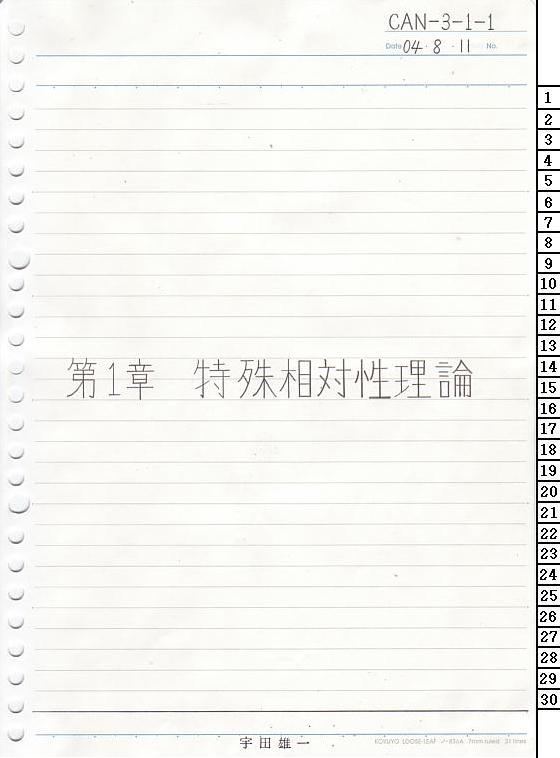 CAN-3-1-1
Date 04・8・11 No.
第1章 特殊相対性理論
1
2
3
4
5
6
7
8
9
10
11
12
13
14
15
16
17
18
19
20
21
22
23
24
25
26
27
28
29
30
宇田雄一
KOKUYO LOOSE-LEAF ノ-836A 7mm ruled 31 lines